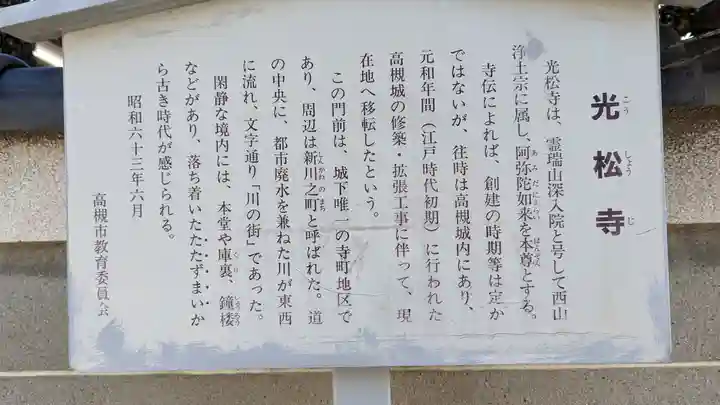 光松寺
こうしょうじ
光松寺は、霊瑞山深入院と号して西山
浄土宗に属し、阿弥陀如来を本尊とする。
あみだにょらい
ほんぞん
寺伝によれば、創建の時期等は定か
ではないが、往時は高槻城内にあり、
元和年間（江戸時代初期）に行われた
高槻城の修築・拡張工事に伴って、現
在地へ移転したという。
この門前は、城下唯一の寺町地区で
あり、周辺は新川之町と呼ばれた。道
しんかわのまち
の中央に、都市廃水を兼ねた川が東西
に流れ、文字通り「川の街」であった。
閑静な境内には、本堂や庫裏、鐘楼
くり
しょうろう
などがあり、落ち着いたたたずまいか
ら古き時代が感じられる。
昭和六十三年六月
高槻市教育委員会